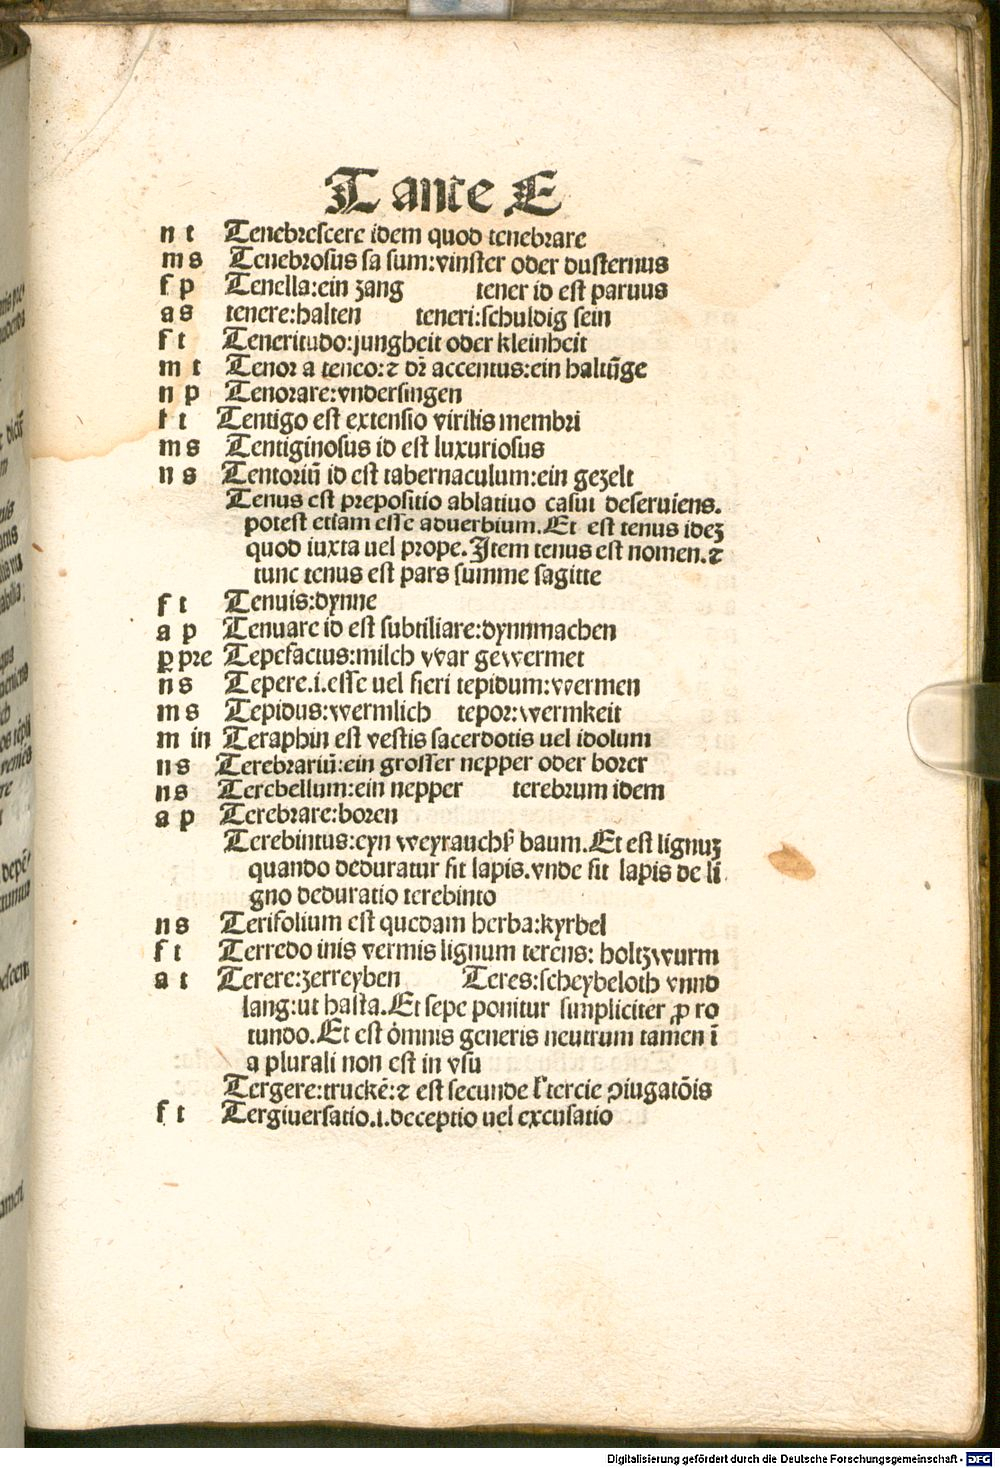 T ante E
n t Tenebrescere idem quod tenebrare
m s Tenebrosus sa sum:vinster oder dusternus
f p Tenella:ein zang tener id est paruus
a s tenere:halten teneri:schuldig sein
f t Teneritudo:jungheit oder kleinheit
m t Tenor a teneo:⁊ dr̄ accentus:ein haltūge
n p Tenorare:vndersingen
f t Tentigo est extensio virilis membri
m s Tentiginosus id est luxuriosus
n s Tentoriū id est tabernaculum:ein gezelt
Tenus est prepositio ablatiuo casui deseruiens.
potest etiam esse aduerbium.Et est tenus ideꝫ
quod iuxta uel prope.Item tenus est nomen.⁊
tunc tenus est pars summe sagitte
f t Tenuis:dynne
a p Tenuare id est subtiliare:dynnmachen
ꝑ pre Tepefactus:milch vvar gewermet
n s Tepere.i.esse uel fieri tepidum:wermen
m s Tepidus:wermlich tepor:wermkeit
m in Teraphin est vestis sacerdotis uel idolum
n s Terebrariū:ein grosser nepper oder borer
n s Terebellum:ein nepper terebrum idem
a p Terebrare:boren
Terebintus:eyn weyrauchß baum.Et est lignuꝫ
quando deduratur fit lapis.vnde fit lapis de li
gno deduratio terebinto
n s Terifolium est quedam herba:kyrbel
f t Terredo inis vermis lignum terens: holtzwurm
a t Terere:zerreyben Teres:scheybeloth vnnd
lang:ut hasta.Et sepe ponitur simpliciter ꝓ ro
tundo.Et est omnis generis neutrum tamen ī
a plurali non est in vsu
Tergere:truckē:⁊ est secunde ⁊ tercie ꝯiugatōis
f t Tergiuersatio.i.deceptio uel excusatio
Digitalisierung gefördert durch die Deutsche Forschungsgemeinschaft - DFG